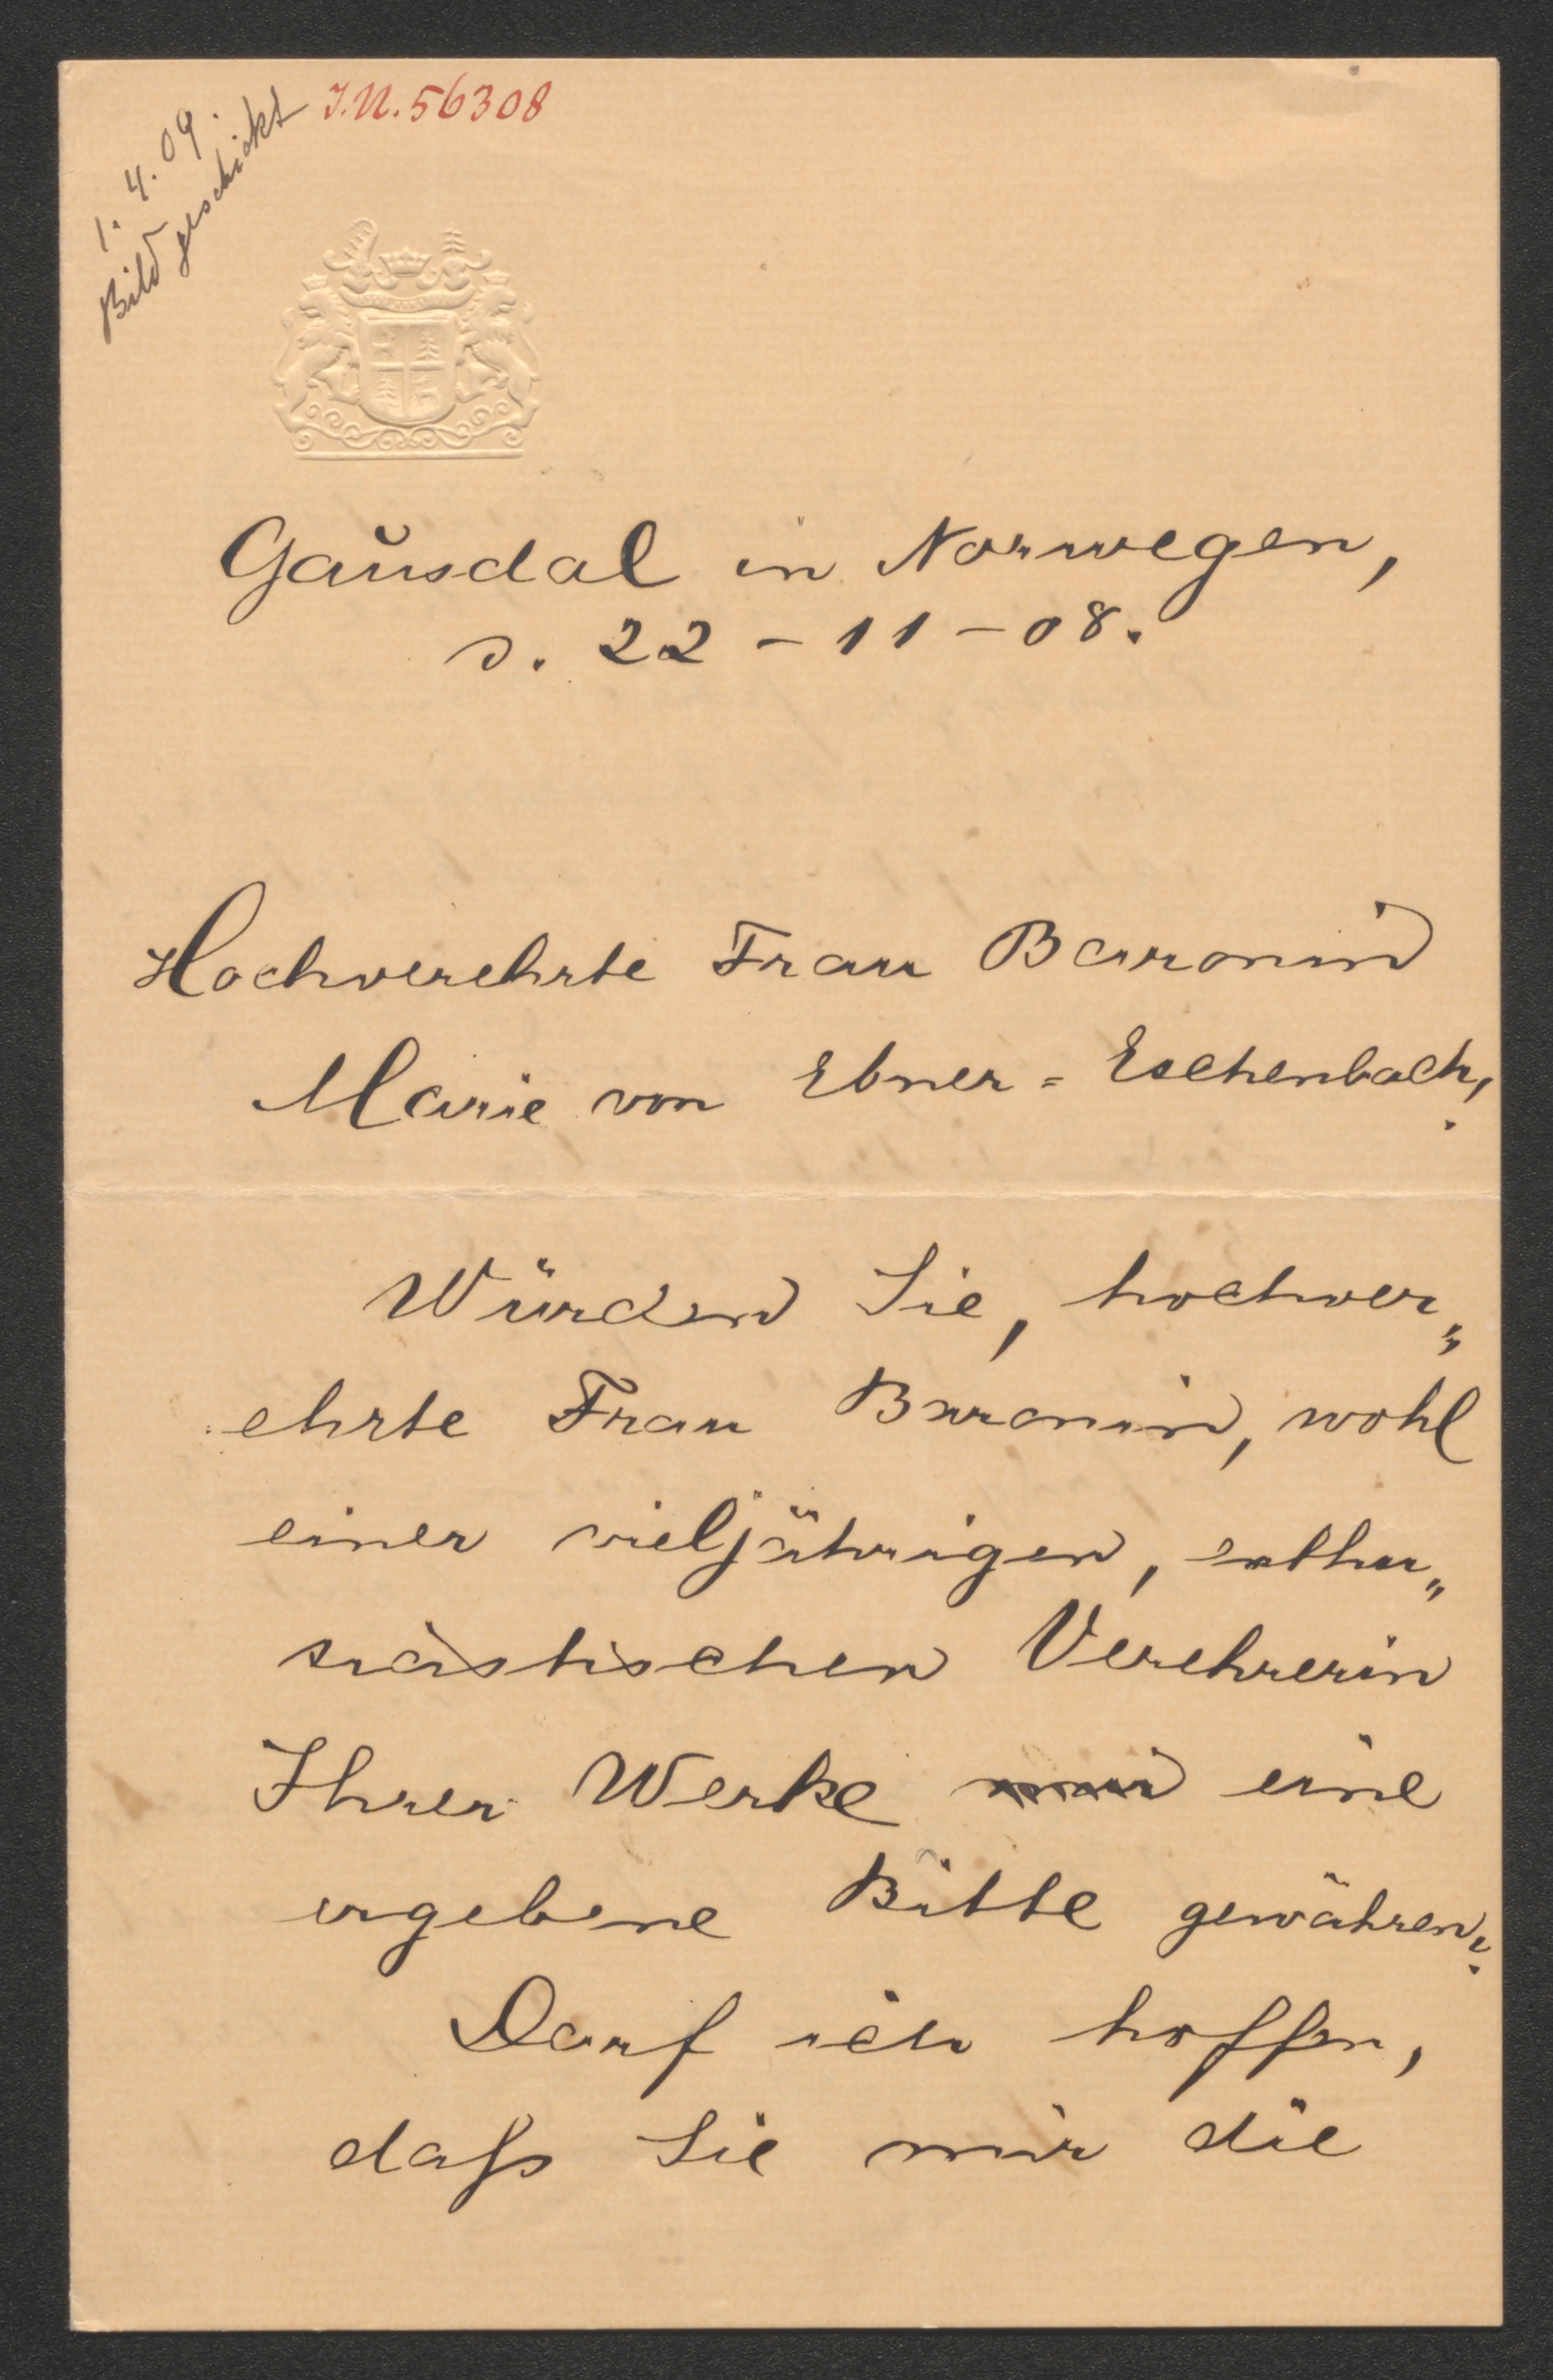 1. 4. 09.
Bild geschickt
I.N. 56308
Gausdal in Norwegen,
d. 22 - 11 - 08.
Hochverehrte Frau Baronin
Marie von Ebner = Eschenbach!
Würden Sie, hochver„
ehrte Frau Baronin, wohl
einer vieljährigen, enthu„
siastischen Verehrerin
Ihrer Werke eine
ergebene Bitte gewähren?
Darf ich hoffen,
daß Sie mir die